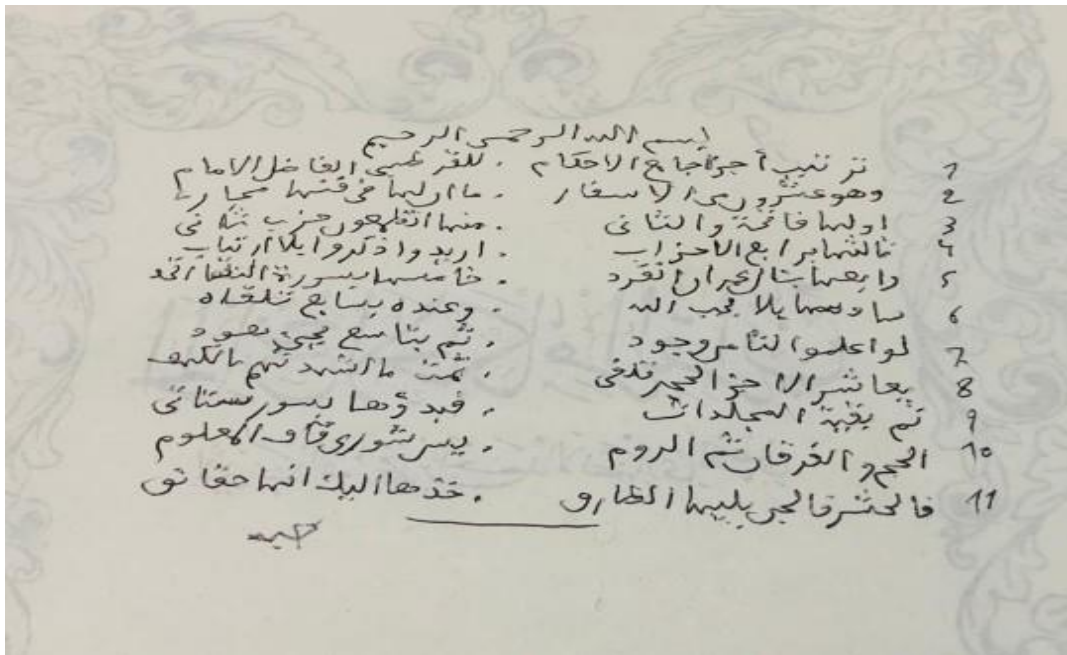 بسم الله الرحمن الرحيم
1 ترتيب أجزا جامع الاحكام . للقرطبي الفاضل الامام
2 وهو عشرون من الاسفار . ما اولها في قتها
3 اولها فاتحة والثاني . منها أتطمعون حزب ثاني
4 ثالثها برابع الاحزاب . اريد واذكروا بلا ارتياب
5 رابعها بئال عمران انفرد . خامسها بسورة النسا اتحد
6 سادسها بلا يحب الله . وعنده بسابع تلقاه
7 لو اعلموا الثامن وجود . ثم بتاسع يجيئ هود
8 بعاشر الا حز الحجر تلفي . ثمت ما اشهدتهم بالكهف
9 ثم بقية المجلدات . فبدؤها بسور ستاتي
10 الحج والفرقان ثم الروم . يس شورى قاف المعلوم
11 فالحشر فالجن يليها الطارق . خذها اليك انها حقائق